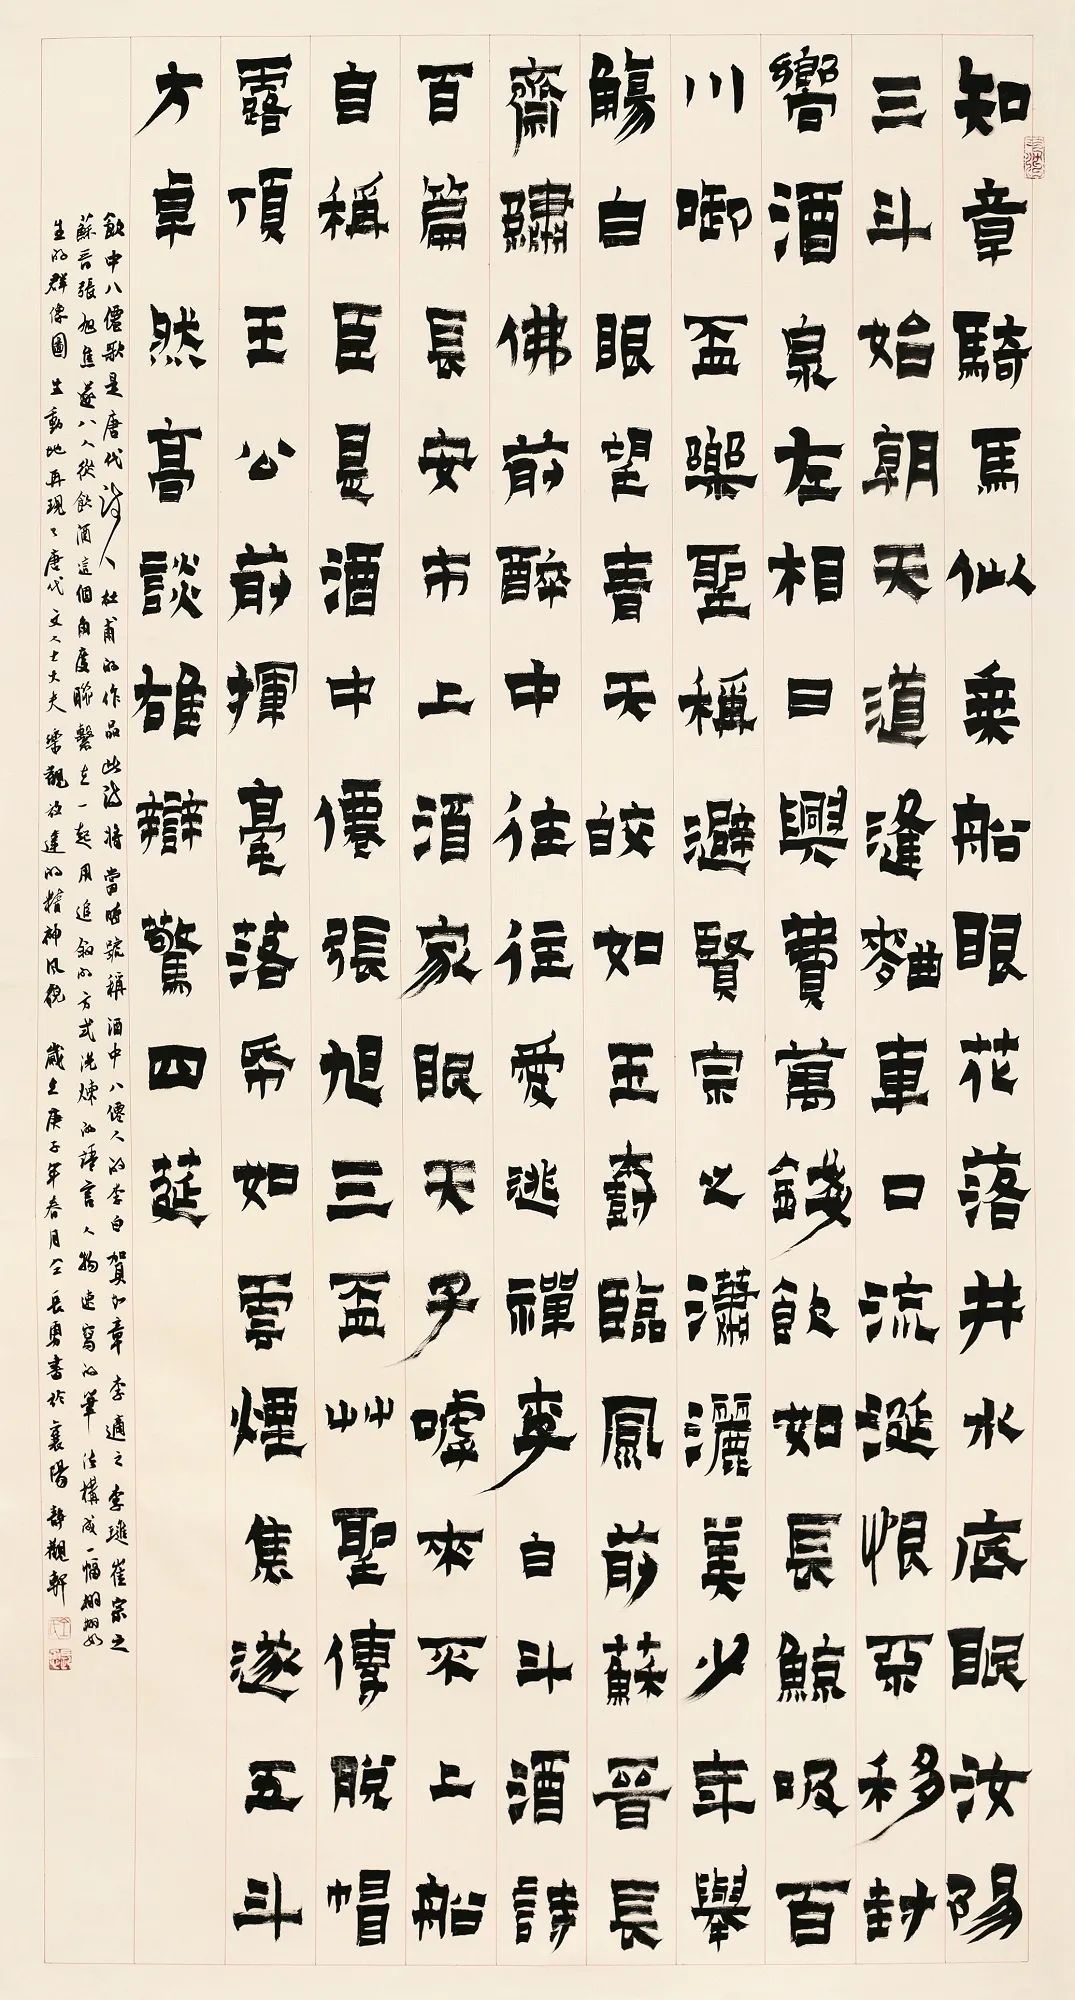 知章騎馬似乘船眼花落井水底眠汝陽
三斗始朝天道逢麴車口流涎恨不移封
嚮酒泉左相日興費萬錢飲如長鯨吸百
川啣盃樂聖稱避賢宗之瀟灑美少年舉
觴白眼望青天皎如玉樹臨風前蘇晉長
齋繡佛前醉中往往愛逃禪李白斗酒詩
百篇長安市上酒家眠天子嘑來不上船
自稱臣是酒中僊張旭三盃艸聖傳脫帽
露頂王公前揮毫落帋如雲煙焦遂五斗
方卓然高談雄辯驚四筵
飲中八僊歌是唐代詩人杜甫的作品此詩將當時號稱酒中八僊人的李白賀知章李適之李璡崔宗之
蘇晉張旭焦遂八人從飲酒這個角度聯繫在一起用追敘的方式洗煉的語言人物速寫的筆法構成一幅栩栩如
生的群像圖生動地再現了唐代文人士大夫樂觀放達的精神風貌歲在庚子年春月仝長勇書於襄陽靜觀軒